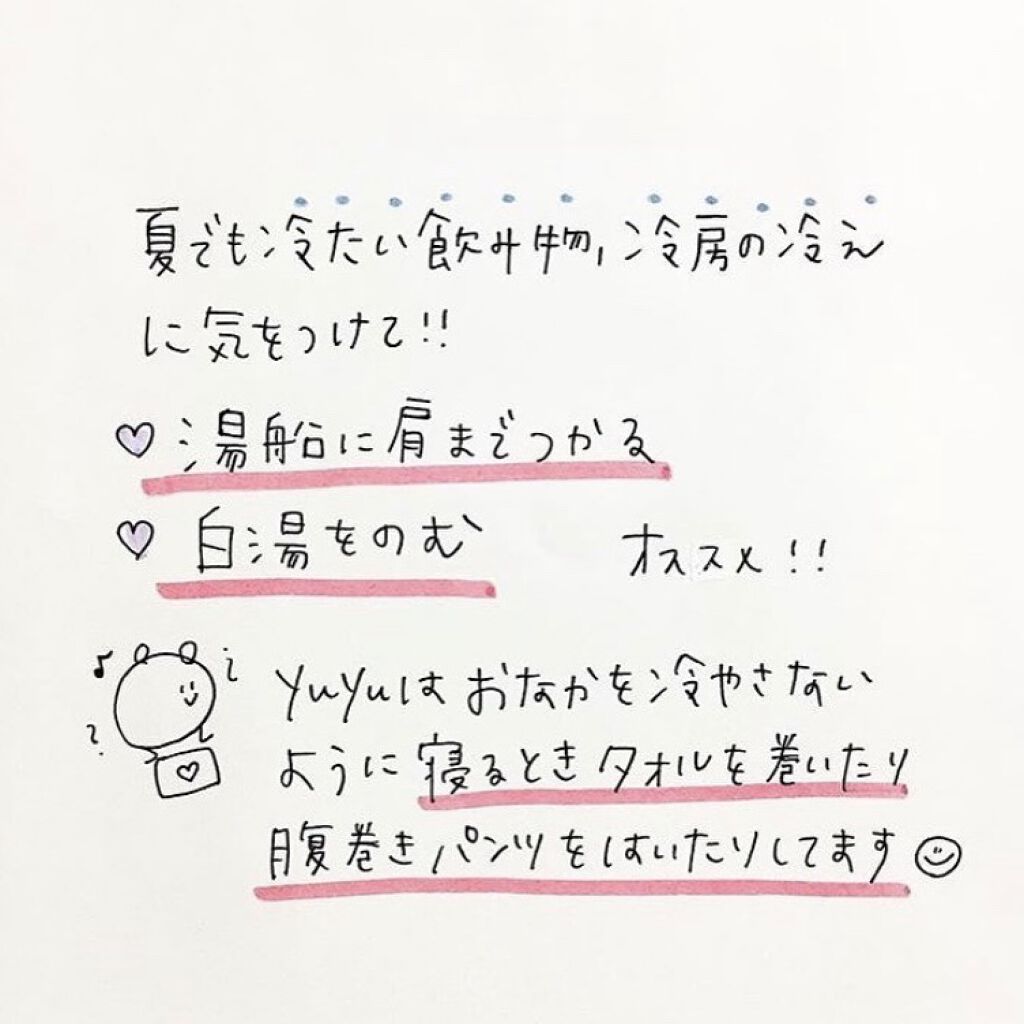 夏でも冷たい飲み物,冷房の冷え
に気をつけて!!
♡ 湯船に肩までつかる
♡ 白湯をのむ オススメ!!
yuyuはおなかを冷やさない
ように寝るときタオルを巻いたり
腹巻きパンツをはいたりしてます☺